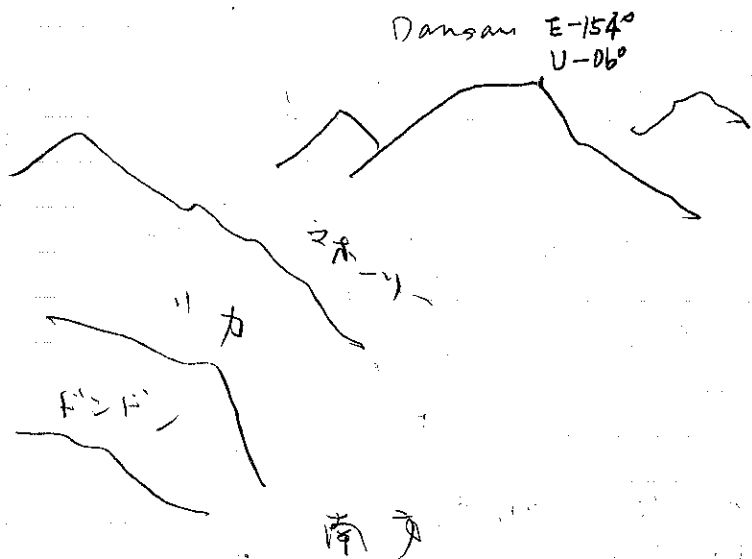 Dansau E-154°
U-06°
マホーリー
リカ
ドンドン
南方